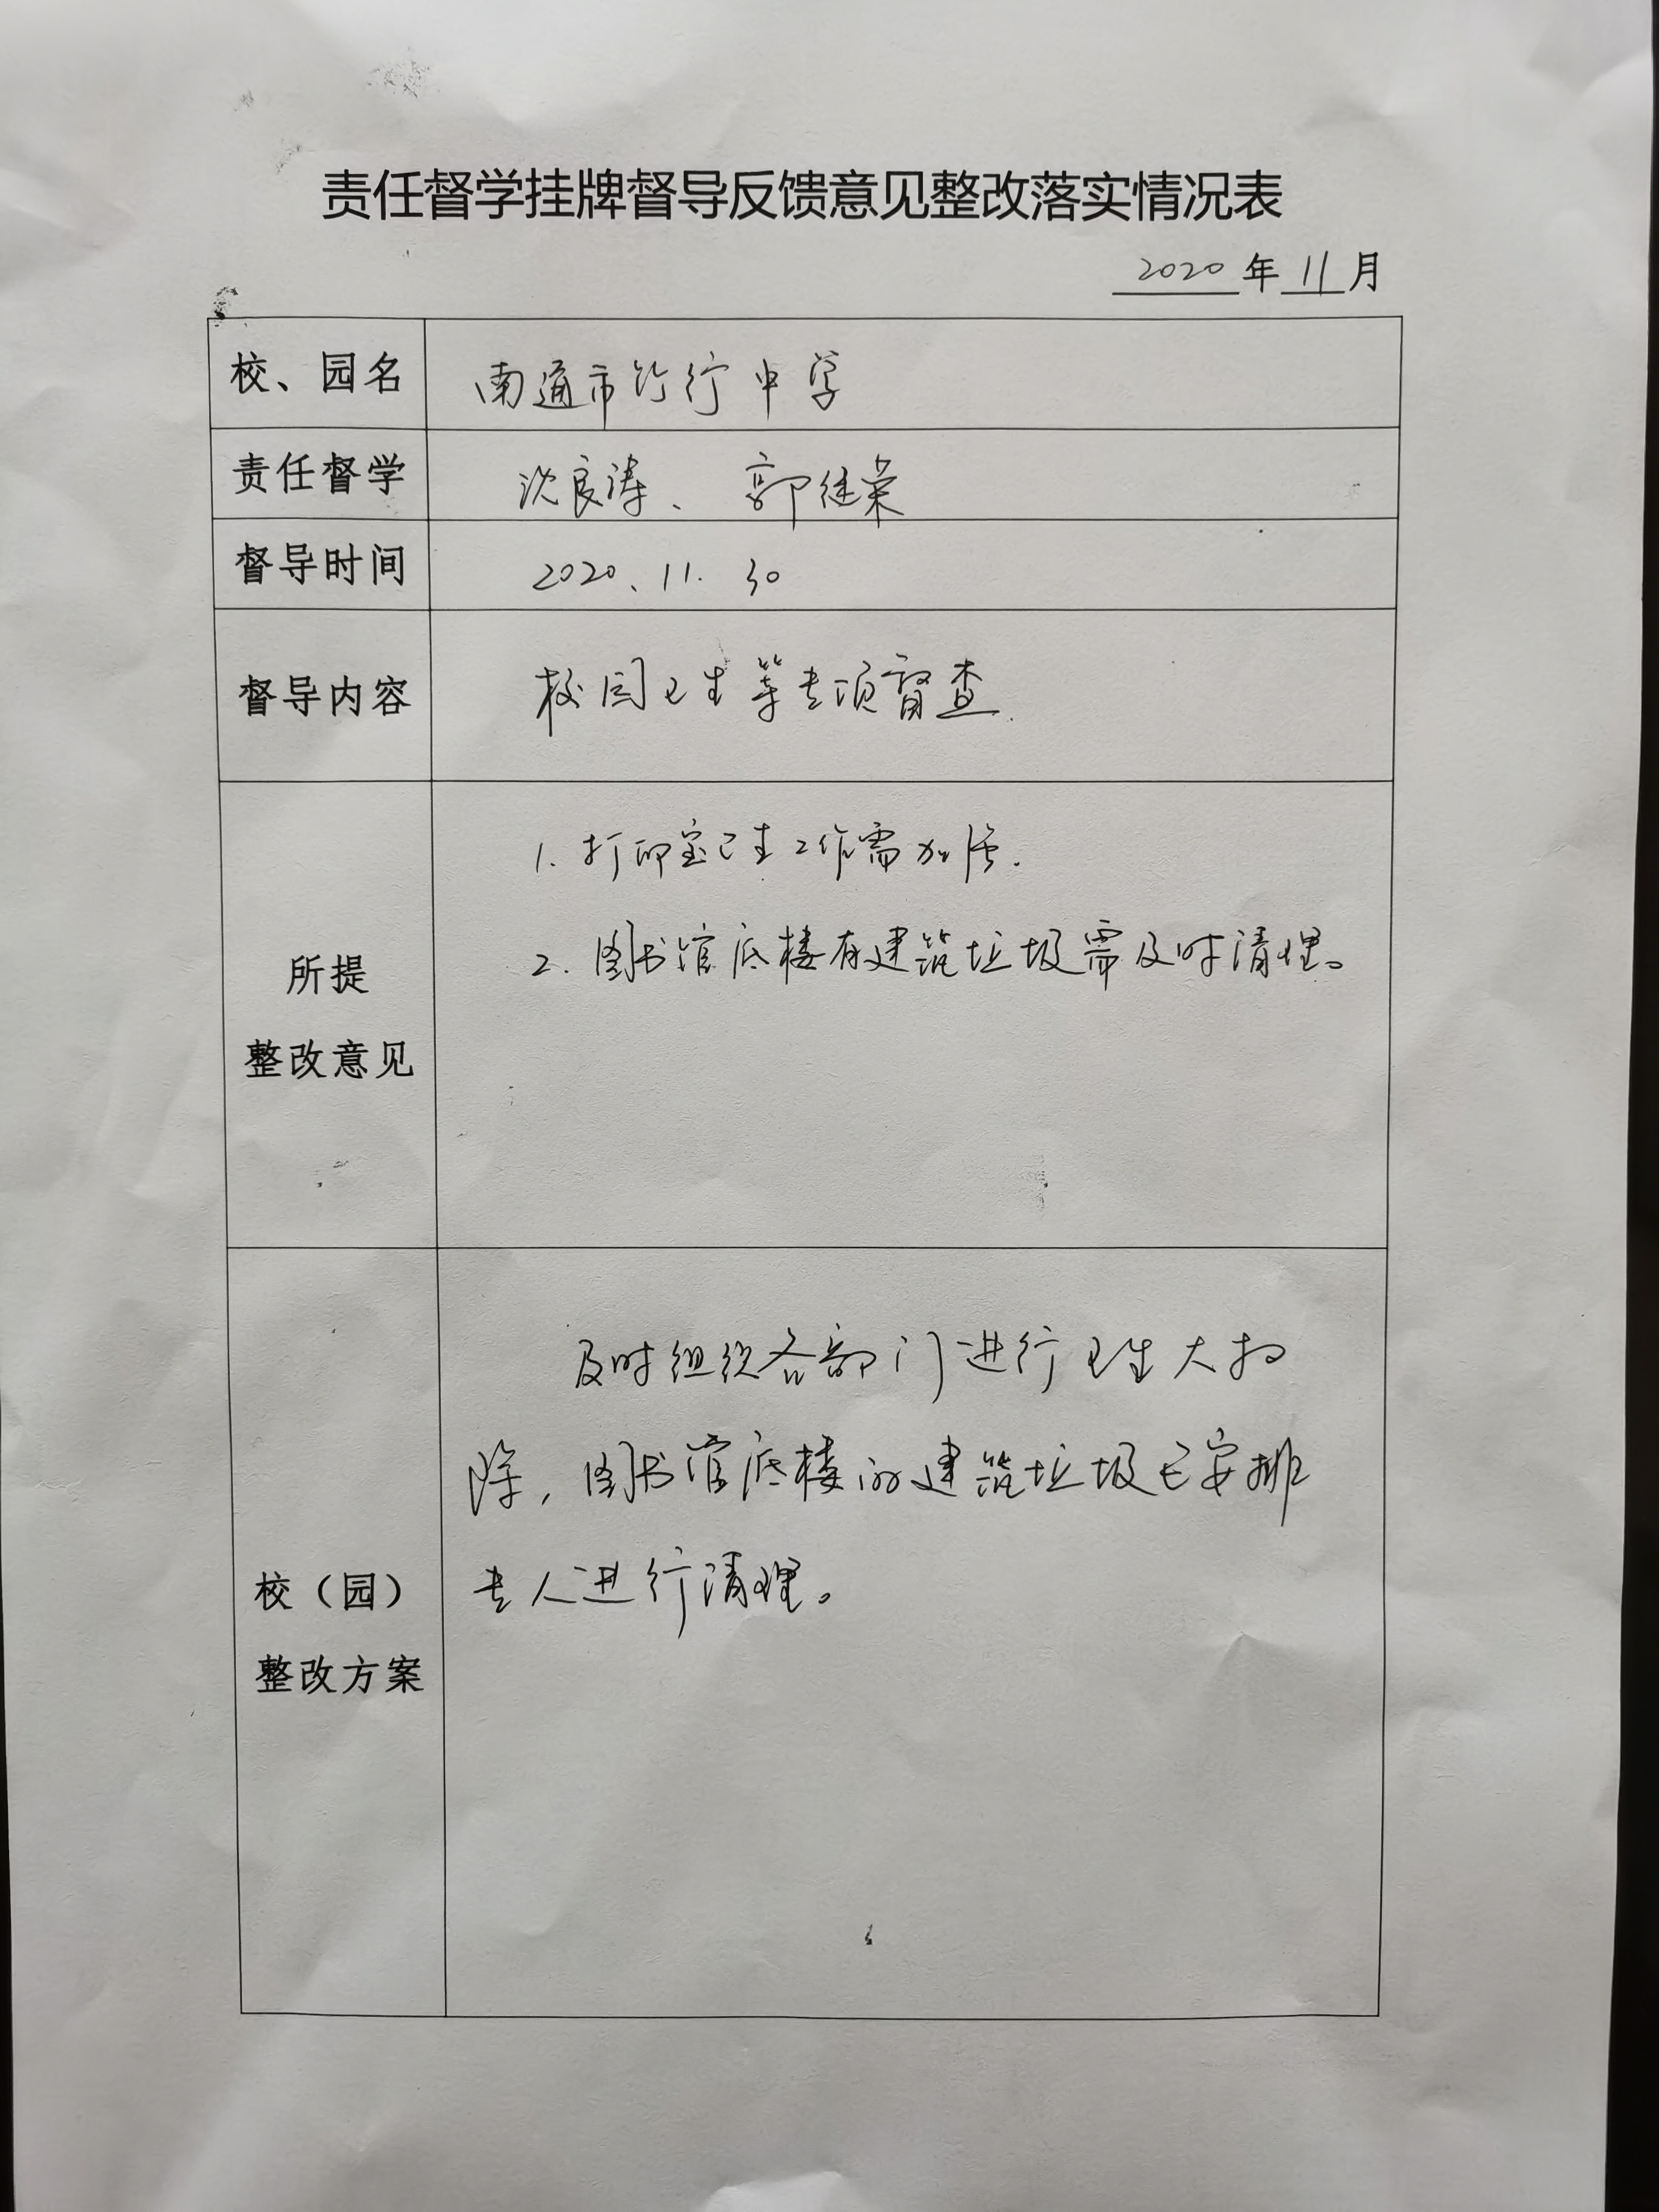 责任督学挂牌督导反馈意见整改落实情况表
2020年11月
校、园名 南通市竹行中学
责任督学 沈良涛、郭继荣
督导时间 2020、11. 30
督导内容 校园卫生等专项督查.
1. 打印室卫生工作需加强.
2. 图书馆底楼有建筑垃圾需及时清理。
所提
整改意见
及时组织各部门进行卫生大扫
除，图书馆底楼的建筑垃圾已安排
专人进行清理。
校（园）
整改方案